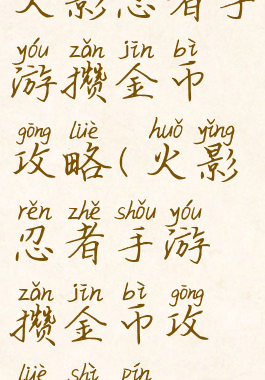 火影忍者手
yóu zǎn jīn bì
游攒金币
gōng lüè huǒ yǐng
攻略(火影
rěn zhě shǒu yóu
忍者手游
zǎn jīn bì gōng
攒金币攻
lüè shì pín